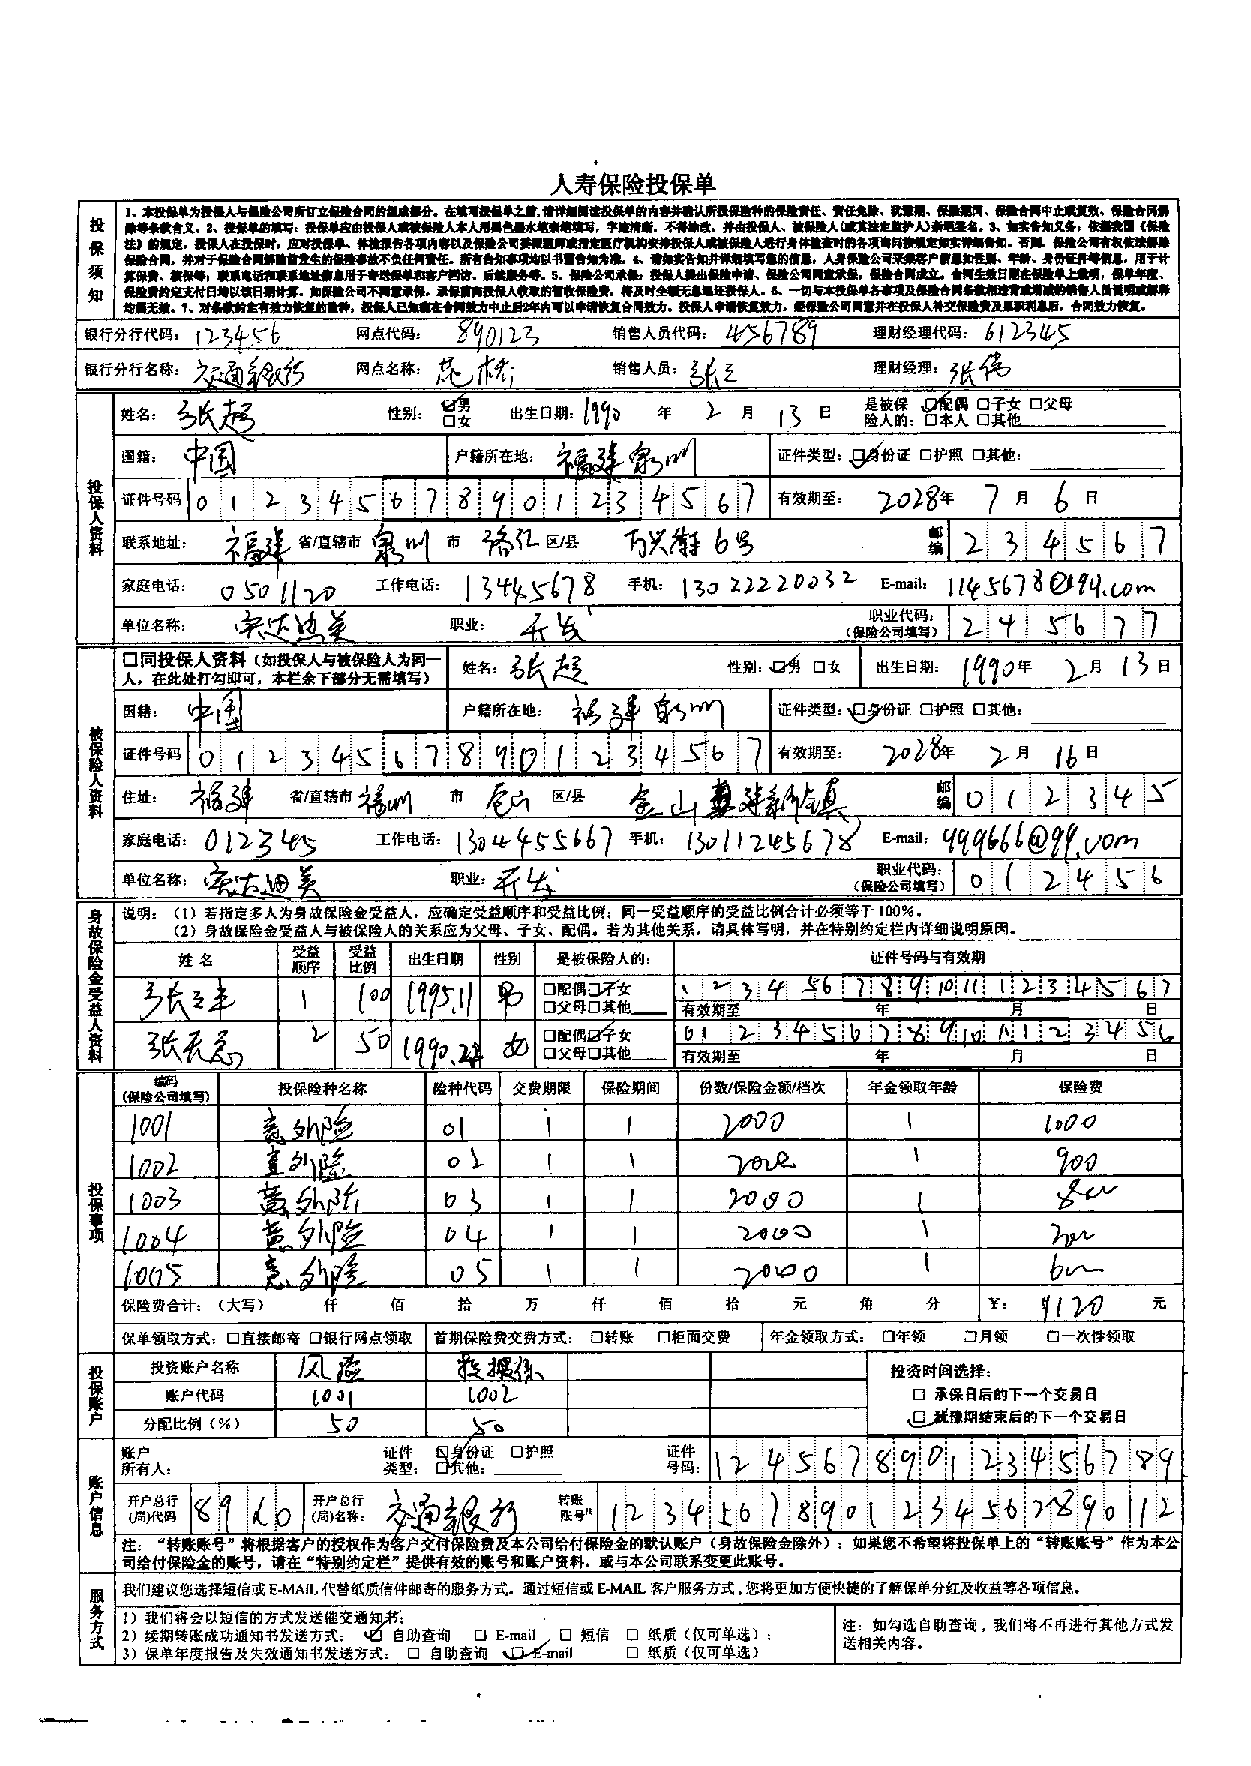 人寿保险投保单
投保须知
1、本投保单为投保人与保险公司所订立保险合同的组成部分。在填写投保单之前,请详细阅读投保单的内容并确认所投保险种的保险责任、责任免除、犹豫期、保险期间、保险合同中止或复效、保险合同解
除等条款含义。2、投保单的填写:投保单应由投保人或被保险人本人用黑色墨水笔亲笔填写,字迹清晰,不得涂改,并由投保人、被保险人(或其法定监护人)亲笔签名。3、如实告知义务,依据我国《保险
法》的规定,投保人在投保时,应对投保单、体检报告各项内容以及保险公司委派医师或指定医疗机构安排投保人或被保险人进行身体检查时的各项询问按规定如实详细告知。否则,保险公司有权依法解除
保险合同,并对于保险合同解除前发生的保险事故不负任何责任。所有告知事项均以书面告知为准。4、请如实告知并详细填写您的信息,人身保险公司采集客户信息如性别、年龄、身份证件等信息,用于计
算保费、核保等;联系电话和联系地址信息用于寄送保单和客户回访、后续服务等。5、保险公司承保:投保人提出保险申请、保险公司同意承保,保险合同成立。合同生效日期在保险单上载明,保单年度、
保险费约定支付日均以该日期计算。如保险公司不同意承保,承保前向投保人收取的暂收保险费,将及时全额无息退还投保人。6、一切与本投保单各事项及保险合同条款相违背或增减的销售人员说明或解释
均属无效。7、对条款约定有效力恢复的险种,投保人已知晓在合同效力中止后2年内可以申请恢复合同效力。投保人申请恢复效力,经保险公司同意并在投保人补交保险费及累积利息后,合同效力恢复。
银行分行代码: 123456 网点代码: 890123 销售人员代码: 456789 理财经理代码: 612345
银行分行名称: 交通银行 网点名称: 花桥 销售人员: 张三 理财经理: 张伟
投保人资料
姓名: 张超 性别: ☑男 □女 出生日期: 1990 年 2 月 13 日 是被保险人的: ☑配偶 □子女 □父母 □本人 □其他
国籍: 中国 户籍所在地: 福建泉州 证件类型: ☑身份证 □护照 □其他:
证件号码 012345678901234567 有效期至: 2028年 7 月 6 日
联系地址: 福建 省/直辖市 泉州 市 洛江 区/县 万兴街6号 邮编 234567
家庭电话: 0501120 工作电话: 13445678 手机: 13022220032 E-mail: 1145678@194.com
单位名称: 宏达迪美 职业: 开发 职业代码:(保险公司填写) 245677
被保险人资料
□同投保人资料(如投保人与被保险人为同一人,在此处打勾即可,本栏余下部分无需填写)
姓名: 张超 性别: ☑男 □女 出生日期: 1990年 2 月 13 日
国籍: 中国 户籍所在地: 福建泉州 证件类型: ☑身份证 □护照 □其他:
证件号码 012345678901234567 有效期至: 2028年 2 月 16 日
住址: 福建 省/直辖市 福州 市 仓山 区/县 金山 邮编 012345
家庭电话: 012345 工作电话: 13044455667 手机: 13011245678 E-mail: 999666@qq.com
单位名称: 宏达迪美 职业: 开发 职业代码:(保险公司填写) 012456
身故保险金受益人资料
说明:(1)若指定多人为身故保险金受益人,应确定受益顺序和受益比例;同一受益顺序的受益比例合计必须等于100%。
(2)身故保险金受益人与被保险人的关系应为父母、子女、配偶。若为其他关系,请具体写明,并在特别约定栏内详细说明原因。
姓 名 受益顺序 受益比例 出生日期 性别 是被保险人的: 证件号码与有效期
张三丰 1 100 1995.11 男 □配偶☑子女 □父母□其他 12345678910111234567
有效期至 年 月 日
张 2 50 1990. 女 □配偶☑子女 □父母□其他 01234567891011123456
有效期至 年 月 日
投保事项
编码(保险公司填写) 投保险种名称 险种代码 交费期限 保险期间 份数/保险金额/档次 年金领取年龄 保险费
1001 意外险 01 1 1 2000 1 1000
1002 意外险 02 1 1 2000 1 900
1003 意外险 03 1 1 2000 1 800
1004 意外险 04 1 1 2000 1
1005 意外险 05 1 1 2000 1 600
保险费合计:(大写) 仟 佰 拾 万 仟 佰 拾 元 角 分 ¥: 4120 元
保单领取方式: □直接邮寄 □银行网点领取 首期保险费交费方式: □转账 □柜面交费 年金领取方式: □年领 □月领 □一次性领取
投保账户
投资账户名称 风险 投保 投资时间选择:
账户代码 1001 1002 □ 承保日后的下一个交易日
分配比例(%) 50 50 ☑ 犹豫期结束后的下一个交易日
账户信息
账户所有人: 证件类型: ☑身份证 □护照 □其他: 证件号码: 124567890123456789
开户总行(局)代码 89 开户总行(局)名称: 交通银行 转账账号 12345678901234567890112
注:“转账账号”将根据客户的授权作为客户交付保险费及本公司给付保险金的默认账户(身故保险金除外);如果您不希望将投保单上的“转账账号”作为本公
司给付保险金的账号,请在“特别约定栏”提供有效的账号和账户资料,或与本公司联系变更此账号。
服务方式
我们建议您选择短信或E-MAIL代替纸质信件邮寄的服务方式。通过短信或E-MAIL客户服务方式,您将更加方便快捷的了解保单分红及收益等各项信息。
1)我们将会以短信的方式发送催交通知书;
2)续期转账成功通知书发送方式: ☑ 自助查询 □ E-mail □ 短信 □ 纸质(仅可单选);
3)保单年度报告及失效通知书发送方式: □ 自助查询 ☑ E-mail □ 纸质(仅可单选)
注:如勾选自助查询,我们将不再进行其他方式发
送相关内容。